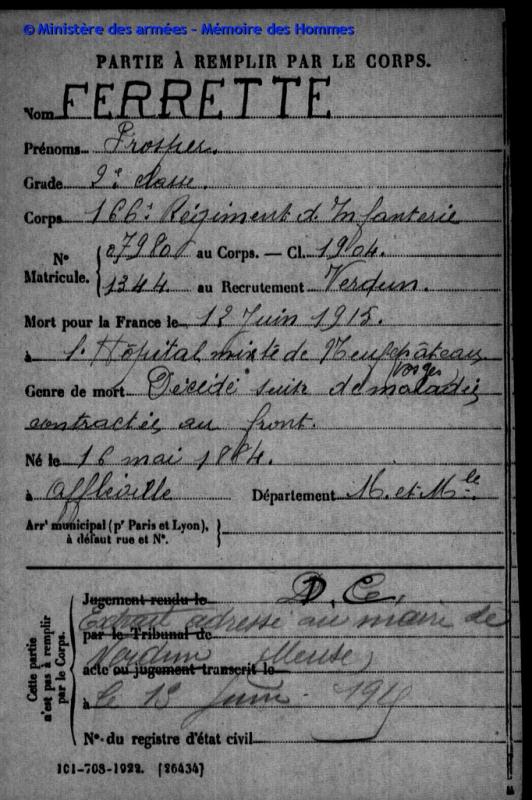 © Ministère des armées - Mémoire des Hommes
PARTIE À REMPLIR PAR LE CORPS.
Nom FERRETTE
Prénoms Prosper
Grade 2e classe.
Corps 166e Régiment d'Infanterie
N° Matricule. { 07980 au Corps. — Cl. 1904.
1344 au Recrutement Verdun.
Mort pour la France le 12 Juin 1915.
à l'Hôpital mixte de Neufchâteau
Vosges
Genre de mort Décédé suite de maladie
contractée au front.
Né le 16 mai 1884.
à Affléville Département M. et Mlle
Arrt municipal (pr Paris et Lyon), à défaut rue et N°. }
Cette partie n'est pas à remplir par le Corps.
Jugement rendu le D. C.
Extrait adressé au maire de
par le Tribunal de
Verdun Meuse
acte ou jugement transcrit le
à le Juin
N° du registre d'état civil
101-708-1922. [26434]